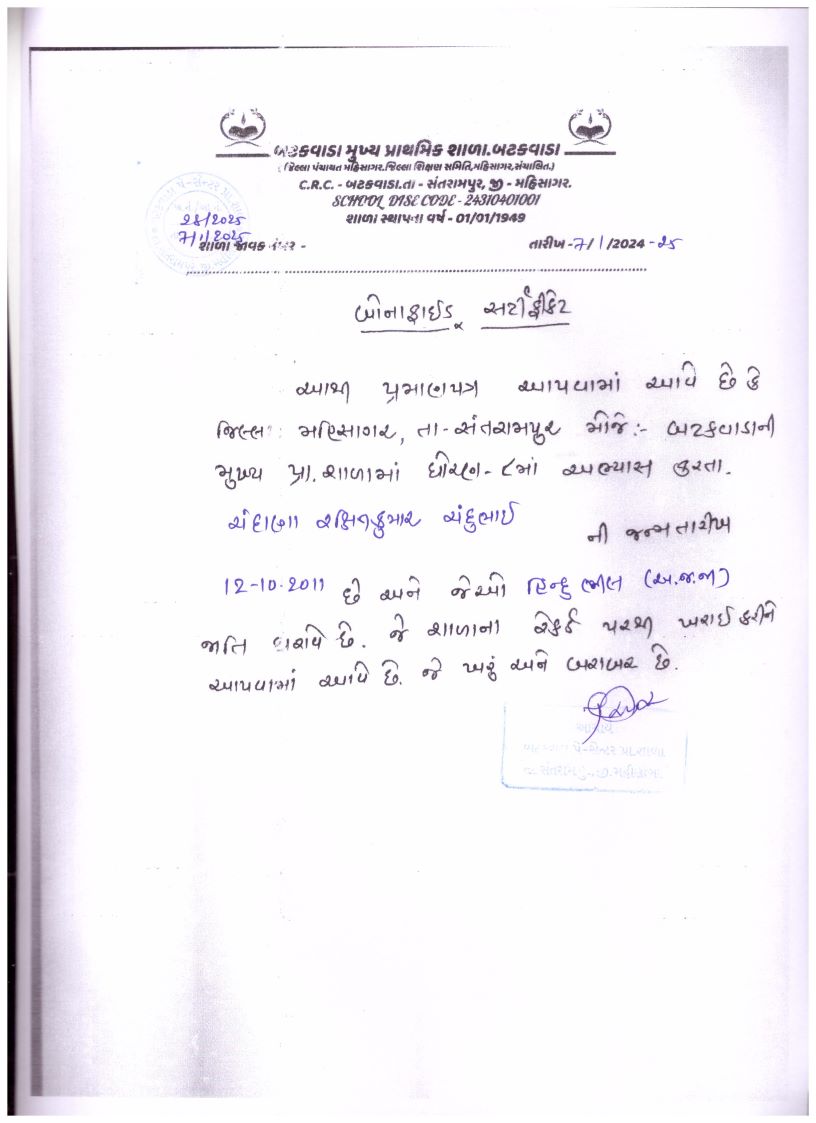 બટકવાડા મુખ્ય પ્રાથમિક શાળા.બટકવાડા
(જિલ્લા પંચાયત મહિસાગર.જિલ્લા શિક્ષણ સમિતિ,મહિસાગર,સંચાલિત.)
C.R.C. - બટકવાડા.તા - સંતરામપુર, જી - મહિસાગર.
SCHOOL DISE CODE - 24310401001
શાળા સ્થાપના વર્ષ - 01/01/1949
28/2025
7/1/2025
શાળા જાવક નંબર -
તારીખ -7/1/2024-25
બોનાફાઈડ સર્ટીફીકેટ
આથી પ્રમાણપત્ર આપવામાં આવે છે કે
જિલ્લા: મહિસાગર, તા-સંતરામપુર મોજે:- બટકવાડાની
મુખ્ય પ્રા. શાળામાં ધોરણ-૮માં અભ્યાસ કરતા.
ચંદુભાઈ
ની જન્મ તારીખ
12-10-2011 છે અને જેઓ હિન્દુ ભીલ (અ.જ.જા)
જાતિ ધરાવે છે. જે શાળાના રેકર્ડ પરથી ખરાઈ કરીને
આપવામાં આવે છે. જે ખરું અને બરાબર છે.
આચાર્ય
પે-સેન્ટર પ્રા.શાળા